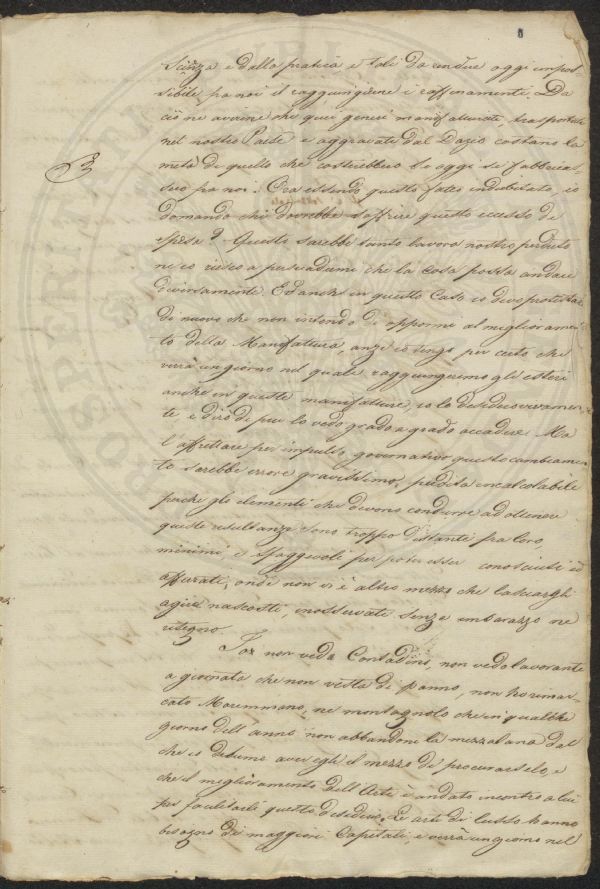 scienza e dalla pratica, e tali da rendere oggi impos-
sibile fra noi il raggiungere i raffinamenti. Da
ciò ne avviene che quei generi manifatturati, trasportati
nel nostro Paese e aggravati dal Dazio costano la
metà di quello che costerebbero se oggi si fabbricas-
sero fra noi. Ora essendo questo fatto indubitato, io
domando chi dovrebbe soffrire questo eccesso di
spesa? Questo sarebbe tanto lavoro nostro perduto
ne io riesco a persuadermi che la cosa possa andare
diversamente. Ed anche in questo Caso io devo protestar
di nuovo che non intendo di oppormi al miglioramen-
to della Manifattura, anzi io tengo per certo che
verrà un giorno nel quale raggiungeremo gli esteri
anche in queste manifatture, io lo desidero vivamen-
te e dirò di più lo vedo grado a grado accadere. Ma
l'affrettare per impulso governativo questo cambiamen-
to sarebbe errore gravissimo, perdita incalcolabile
perche gli elementi che devono condurre ad ottenere
queste resultanze sono troppo distanti fra loro
minimi e sfuggevoli per poter esser conosciuti ed
afferrati, onde non vi è altro mezzo che lasciargli
agire nascosti, inosservati senza imbarazzo ne
ritegno.
Io non vedo Contadino, non vedo lavorante
a giornata che non vesta di panno, non ho rimar-
cato Maremmano, ne montagnolo che in qualche
giorno dell'anno non abbandoni la mezzalana dal
che io desumo aver egli il mezzo di procurarselo, e
che il miglioramento dell'Arte è andato incontro a lui
per facilitarli questo desiderio. Le arti di lusso hanno
bisogno di maggiori Capitali e verrà un giorno nel
PROSPERITATI